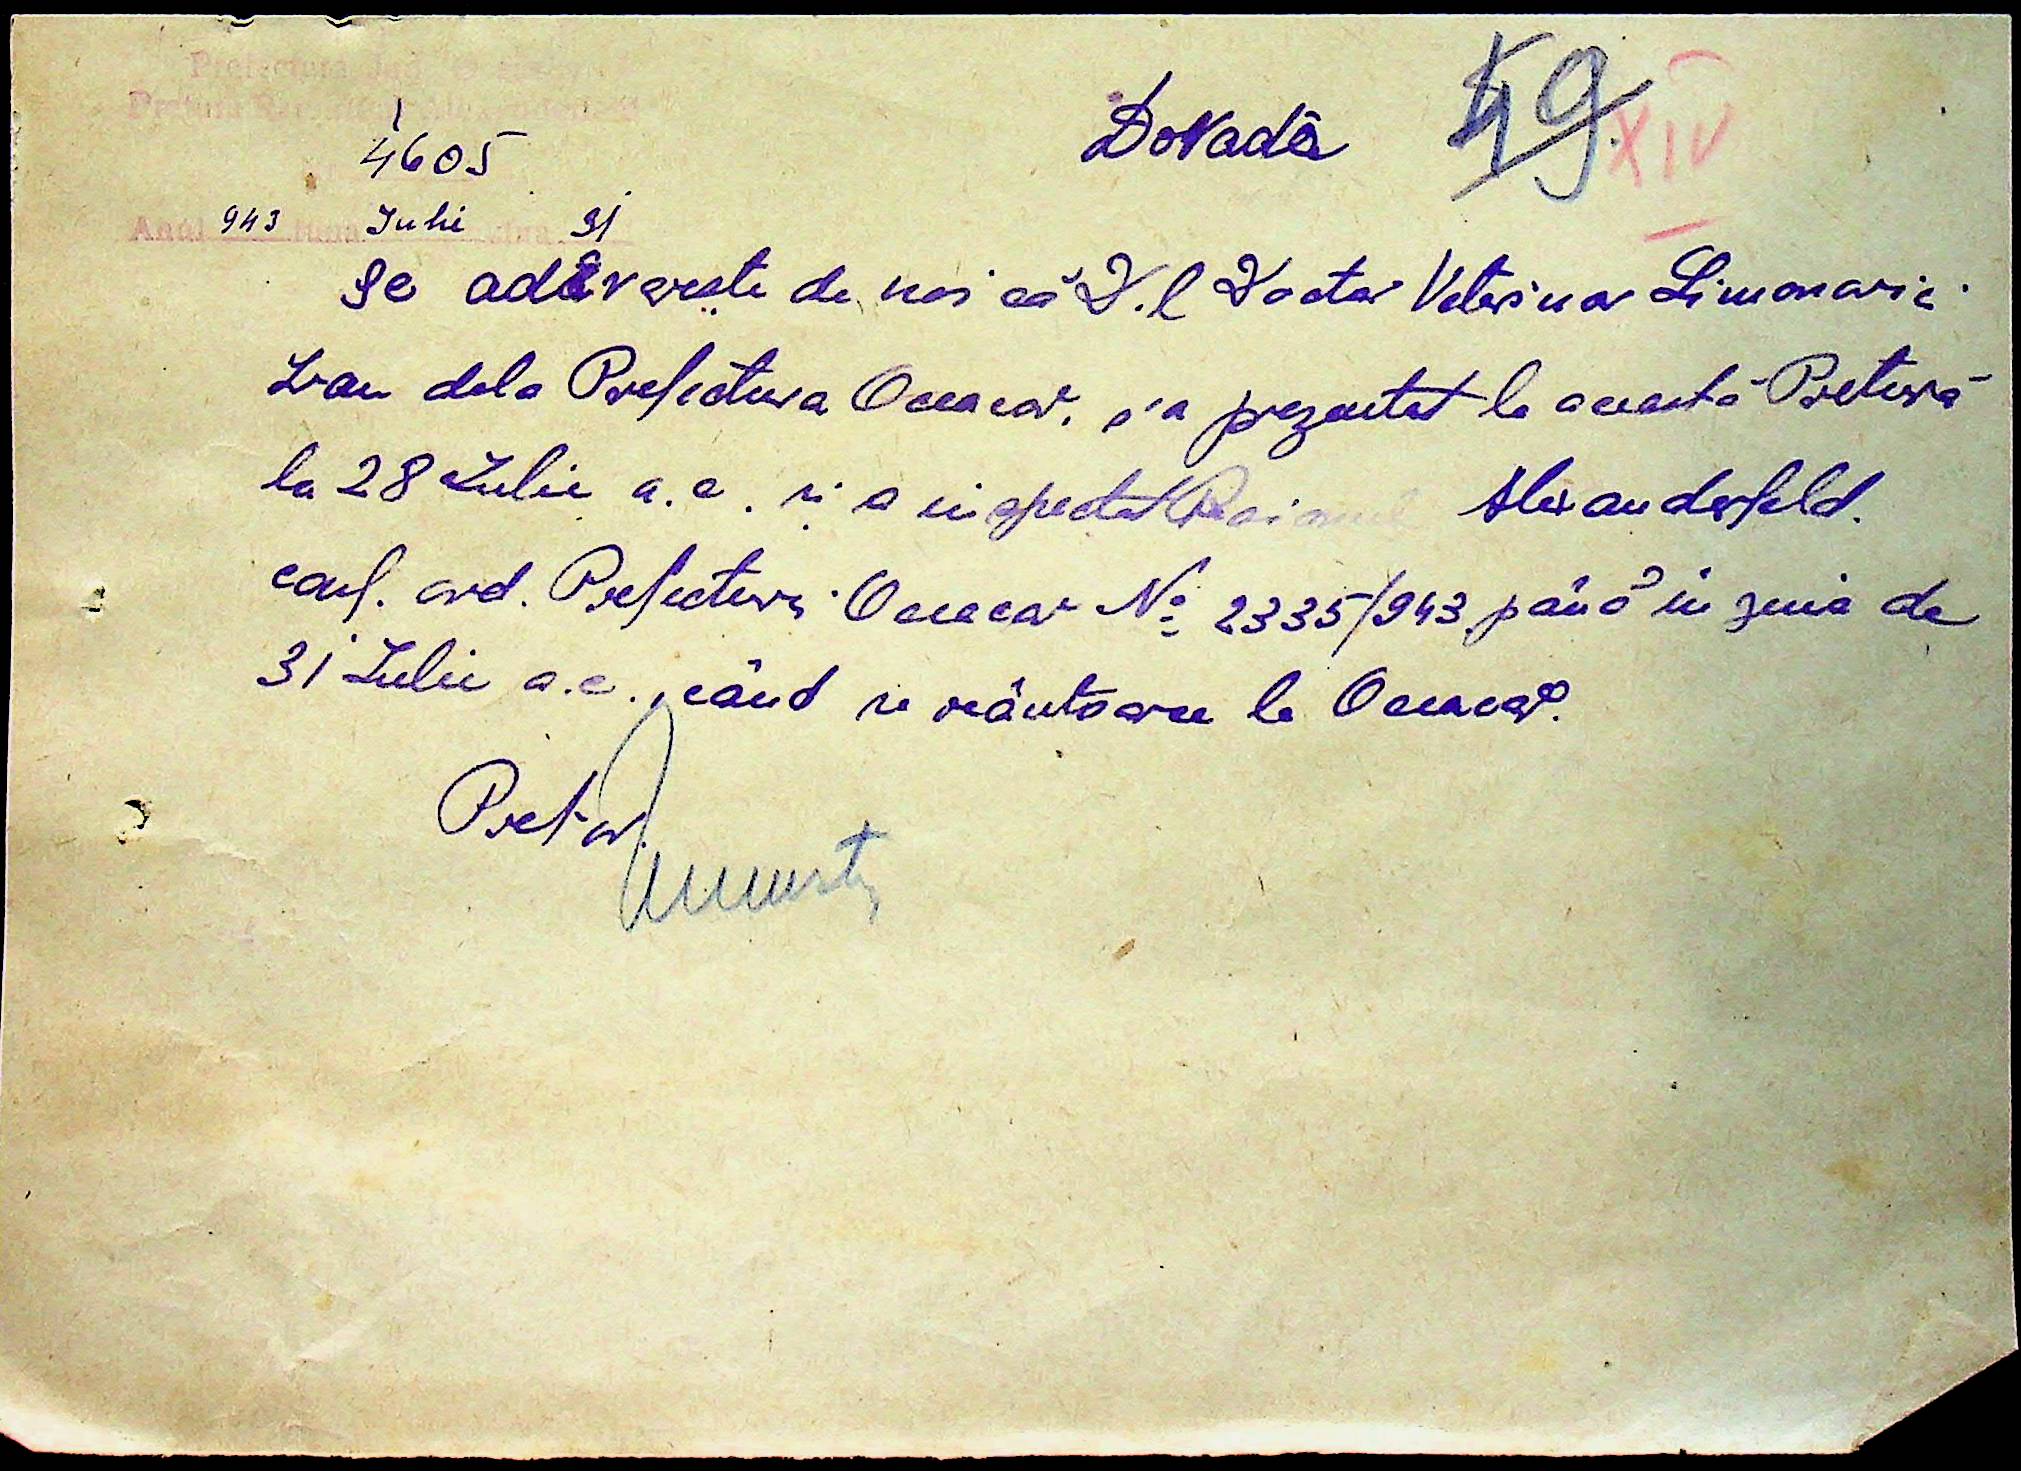 Prefectura Jud. Oceacov
Pretura Raionului Alexanderfeld
4605
Dovadă
49.
XIV
Anul 943 luna Iulie ziua 31
Se adeverește de noi că D.l Doctor Veterinar Limonariei
Ivan dela Prefectura Oceacov, s'a prezentat la această Pretură
la 28 Iulie a.c. și a inspectat Raionul Alexanderfeld.
conf. ord. Prefecturii Oceacov No 2335/943 până în ziua de
31 Iulie a.c., când se reântoarce la Oceacov.
Pretor,